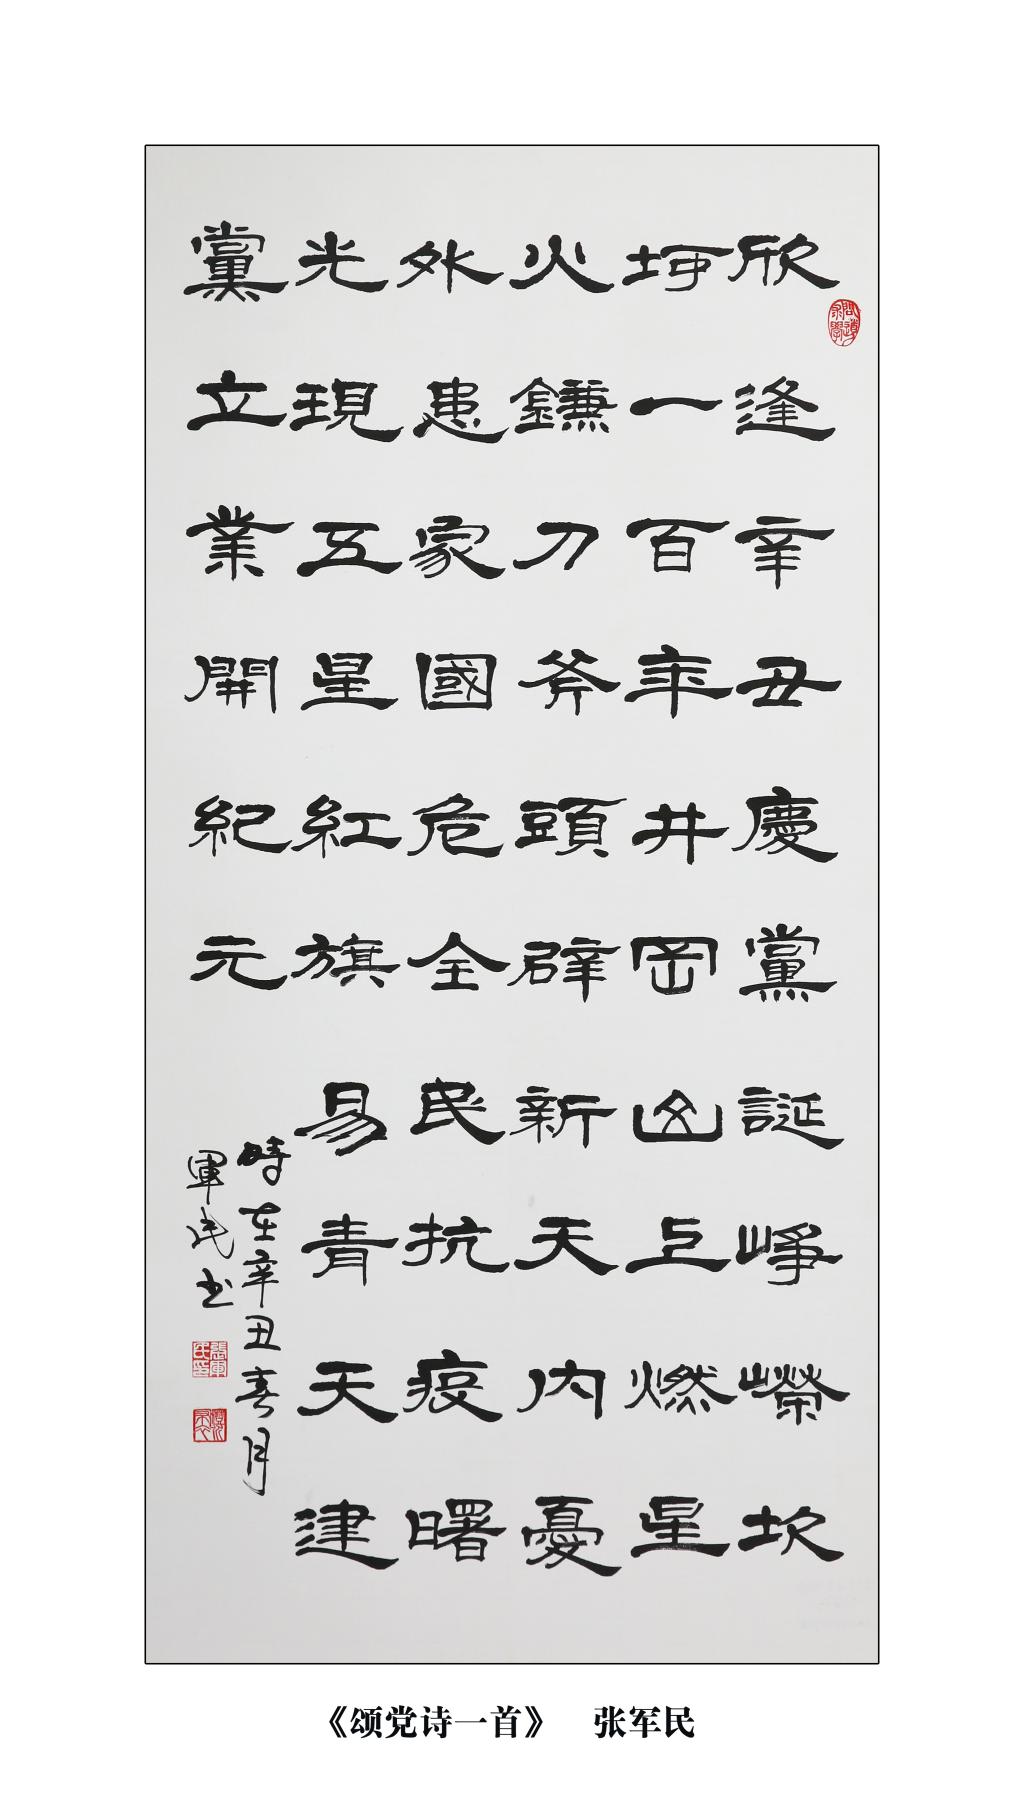 欣逢辛丑慶黨誕崢嶸坎
坷一百年井岡山上燃星
火鐮刀斧頭辟新天内憂
外患家國危全民抗疫曙
光現五星紅旗易青天建
黨立業開紀元
時在辛丑春月
軍民书
張軍民印
《颂党诗一首》 张军民